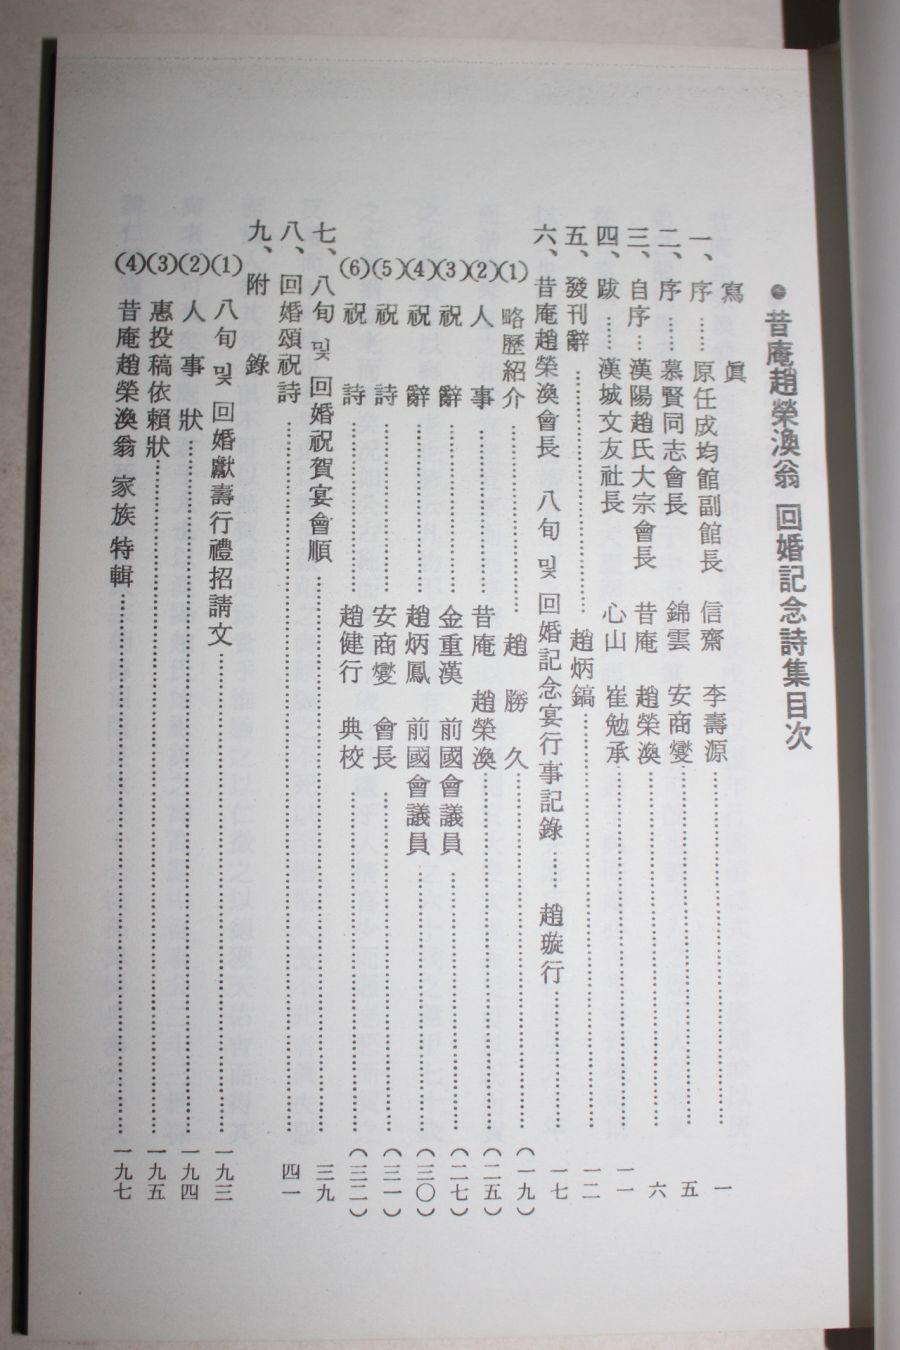 ●昔庵趙榮渙翁 回婚記念詩集目次
寫 眞
一、序……原任成均館副館長 信齋 李壽源……一
二、序……慕賢同志會長 錦雲 安商燮……五
三、自序……漢陽趙氏大宗會長 昔庵 趙榮渙……六
四、跋……漢城文友社長 心山 崔勉承……一一
五、發刊辭……趙炳鎬……一二
六、昔庵趙榮渙會長 八旬 및 回婚記念宴行事記錄……趙璇行……一七
(1) 略歷紹介……趙 勝 久……(一九)
(2) 人 事……昔庵 趙榮渙……(二五)
(3) 祝 辭……金重漢 前國會議員……(二七)
(4) 祝 辭……趙炳鳳 前國會議員……(三〇)
(5) 祝 詩……安商燮 會長……(三一)
(6) 祝 詩……趙健行 典校……(三二)
七、八旬 및 回婚祝賀宴會順……三九
八、回婚頌祝詩……四一
九、附 錄
(1) 八旬 및 回婚獻壽行禮招請文……一九三
(2) 人 事 狀……一九四
(3) 惠投稿依賴狀……一九五
(4) 昔庵趙榮渙翁 家族 特輯……一九七